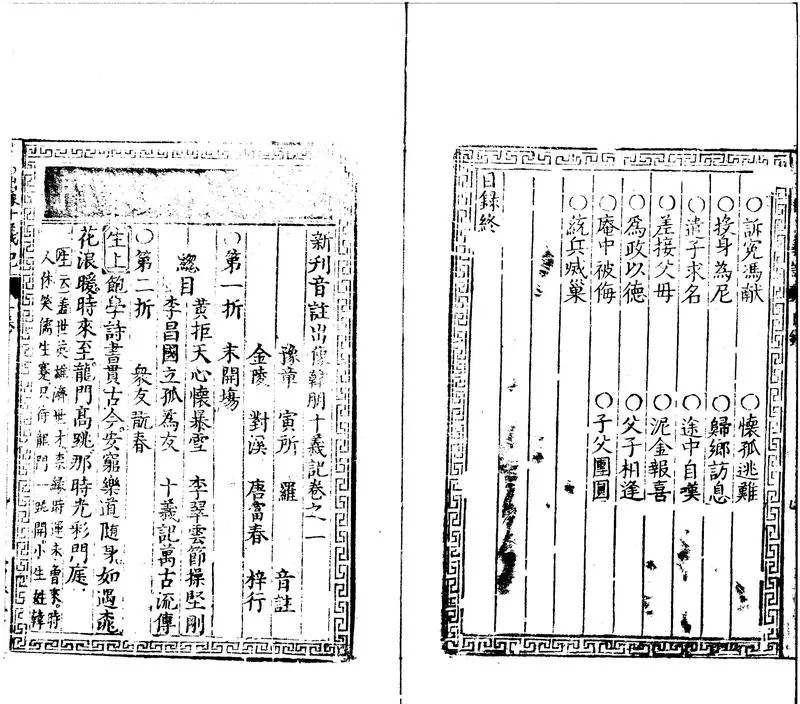 ○訴冤馮獻　○懷孤逃難
○投身為尼　○歸鄉訪息
○遣子求名　○途中自嘆
○差接父母　○泥金報喜
○為政以德　○父子相逢
○庵中被侮　○子父團圓
○統兵滅巢
目録終
新刊音註出像韓朋十義記卷之一
豫章　寅所　羅　音註
金陵　對溪　唐富春　梓行
○第一折　末開場
總目　黃拒天心懷暴雪　李翠雲節操堅剛
李昌國立孤為友　十義記萬古流傳
○第二折　衆友翫春
生上飽學詩書貫古今安窮樂道随身如遇桃
花浪暖時來至龍門高跳那時光彩門庭
生云蓋世英雄濟世才柰緣時運未曾來時
人休笑儒生蹇只待龍門一跳開小生姓韓